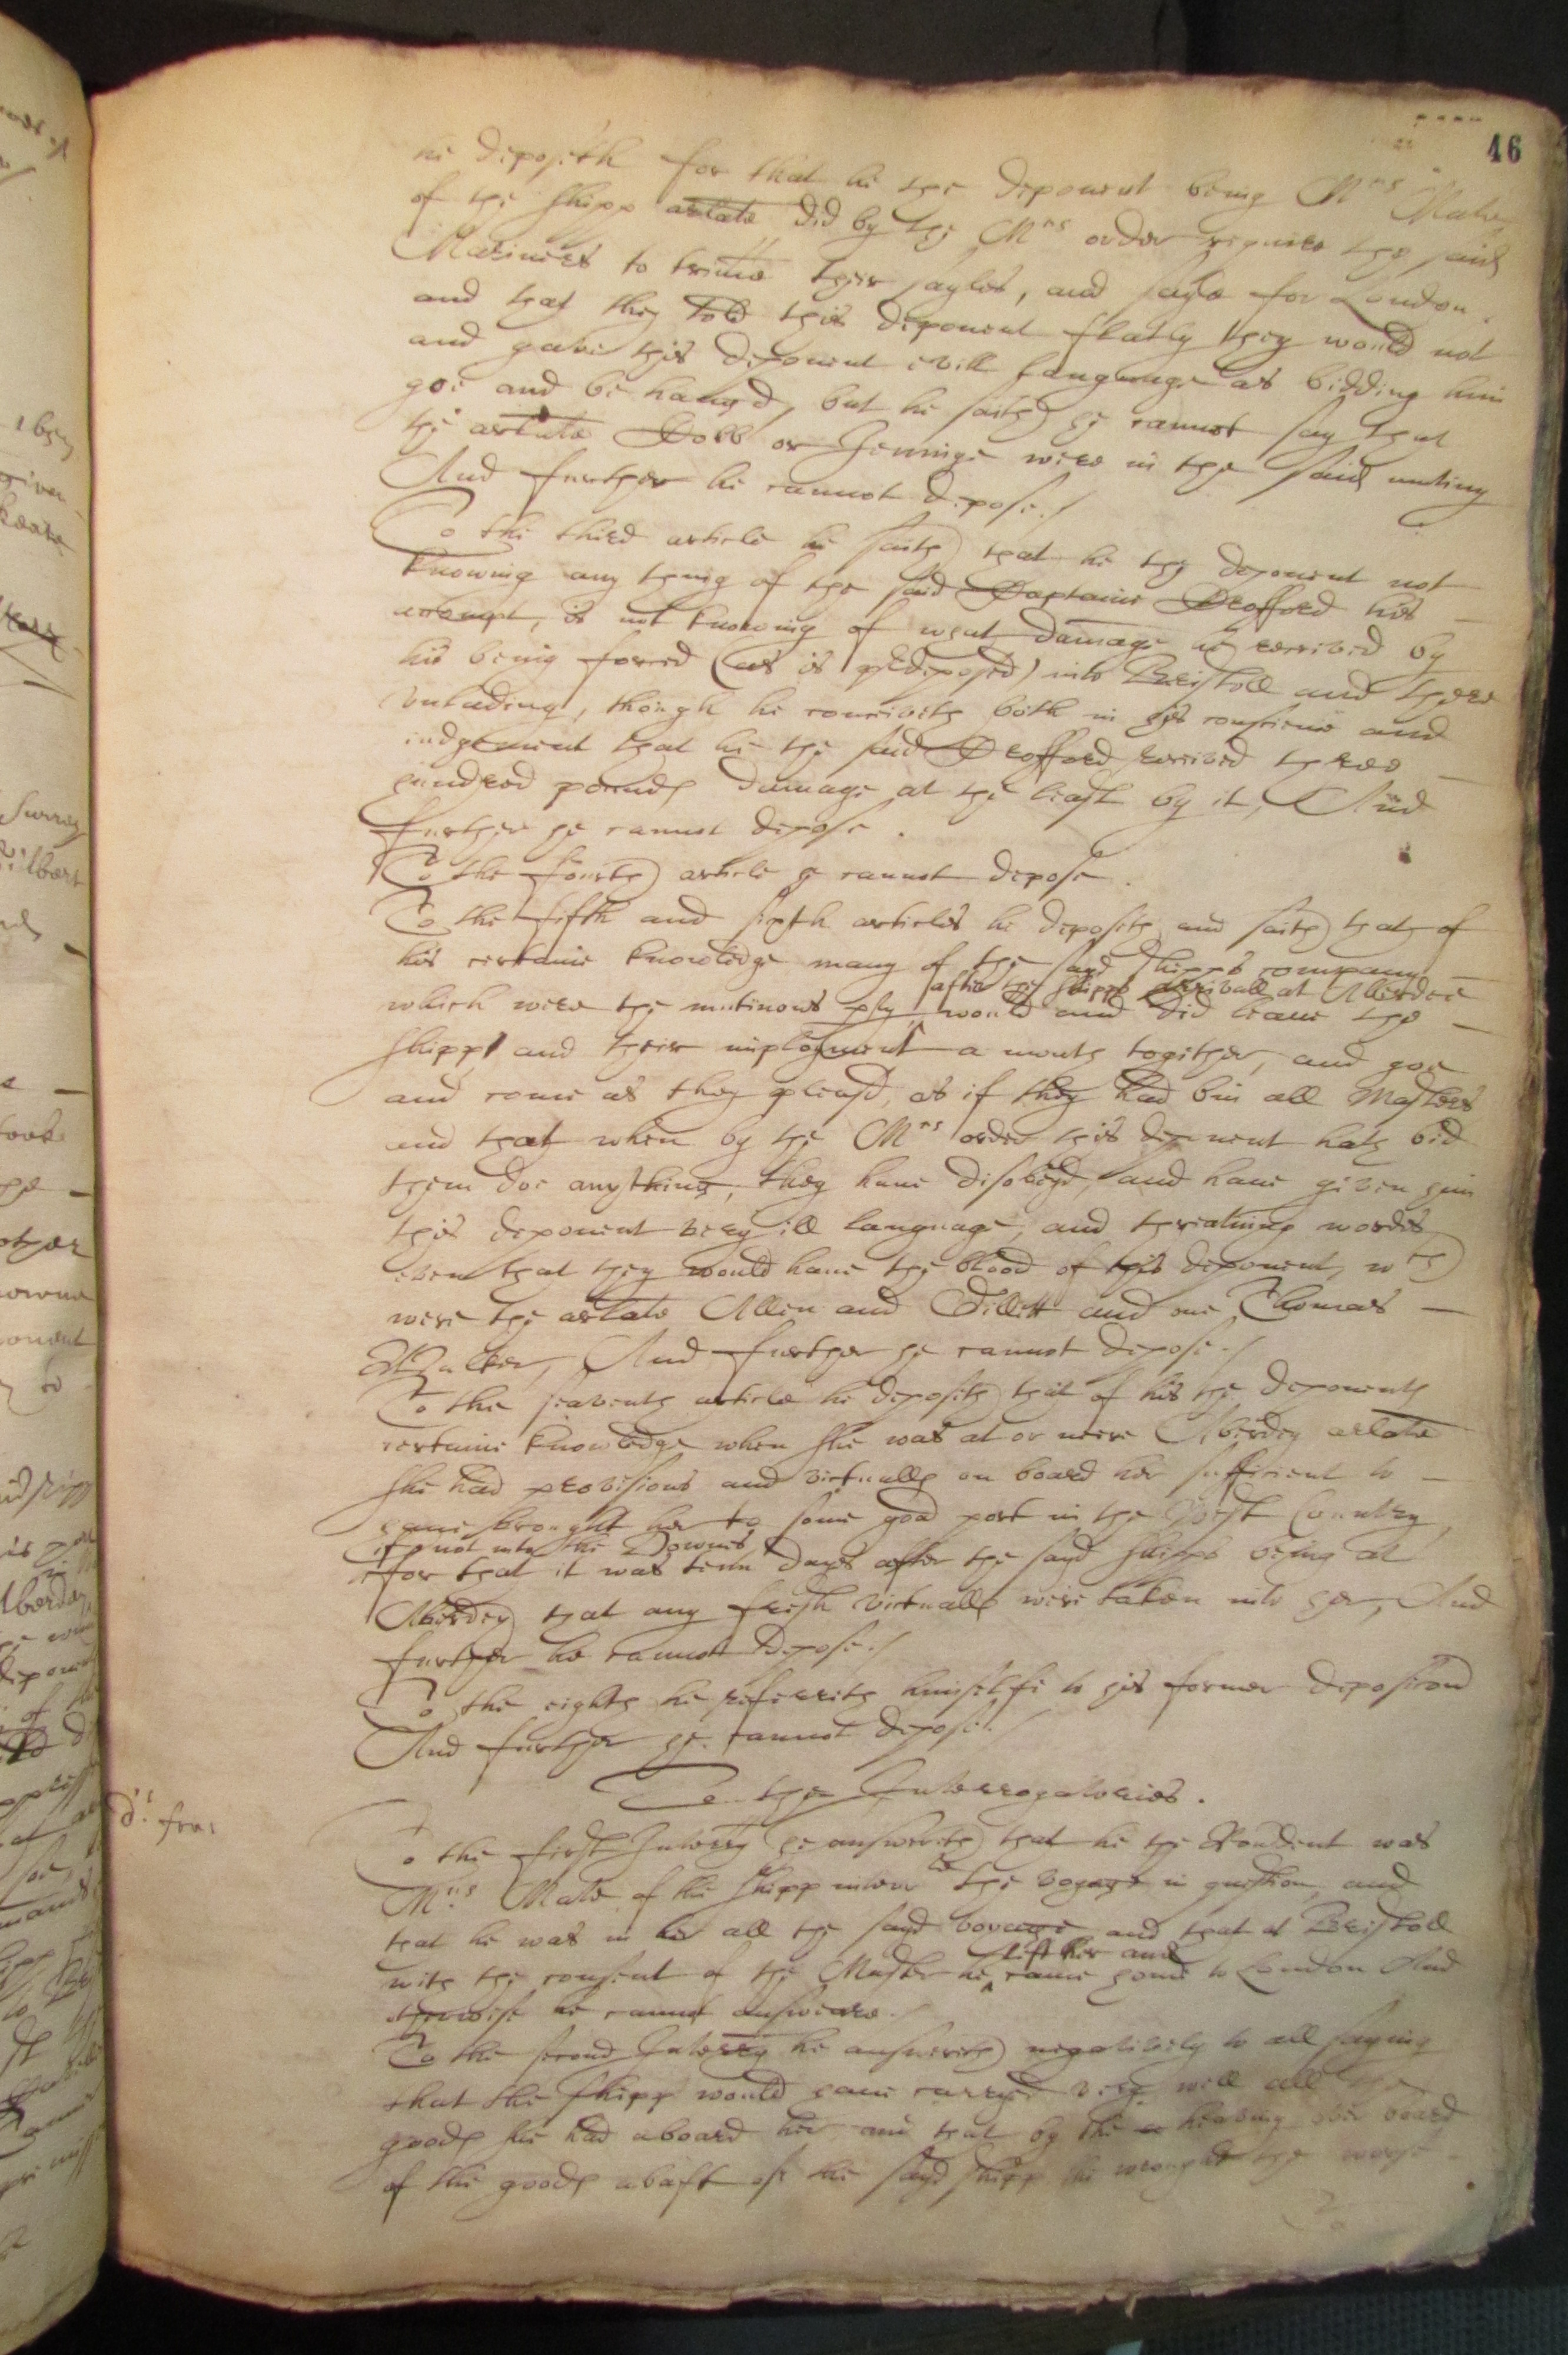 46
he deposeth for that he the deponent being Mrs Mate
of the shipp arlate did by the Mrs order require the said
Mariners to trime their sayles, and sayle for London.
and that they told this deponent flatly they would not
and gave this deponent evill language as bidding him
goe and be hangd, but he saith he cannot say that
the arlate Dobb or Jennings were in the said mutiny
And further he cannot depose./
To the third article he saith that he the deponent not
knowing any thing of the said Captaine Strofford his
accompt, is not knowing of what damage he received by
his being forced (as is predeposed) into Bristoll and there
unlading, though he conceiveth both in his conscience and
iudgement that he the said Strofford received three
hundred pounds damage at the least by it, And
further he cannot depose.
To the fourth article he cannot depose.
To the fifth and sixth articles he deposeth and saith that of
his certaine knowledge many of the sayd shipps company
after the shipps arrivall at Aberdee
which were the mutinous pty would and did leave the
shipp and their imployment a month togither, and goe
and come as they pleasd, as if they had bin all Masters
and that when by the Mrs order this deponent hath bid
them doe anything, they have disobeyd, and have given him
this deponent very ill language, and threatning wordes
even that they would have the blood of this deponent, wch
were the arlate Allen and Tillett and one Thomas
Walker, And further he cannot depose./
To the seaventh article he deposeth that of his the deponents
certaine knowledge when she was at or neere Aberdey arlate
she had provisions and victualls on board her sufficient to
have brought her to some good port in the West Country
if not into the Downes
for that it was tenn dayes after the sayd shipps being at
Aberdey that any fresh victualls were taken into her, And
further he cannot depose./
To the eighth he referreth himselfe to his former deposicon
And further he cannot depose./
To the Interrogatories.
To the first Interry he answereth that he the Rondent was
Mrs Mate of the shipp interr the voyage in question, and
that he was in her all the sayd voyage and that at Bristoll
left her and
with the consent of the Master he came home to London And
otherwise he cannot answeare./
To the second Interry he answereth negatively to all saying
that the shipp would have carryed very well all the
goods she had aboard her and that by the heaving over board
of the goods abaft of the sayd shipp she wrought the worse